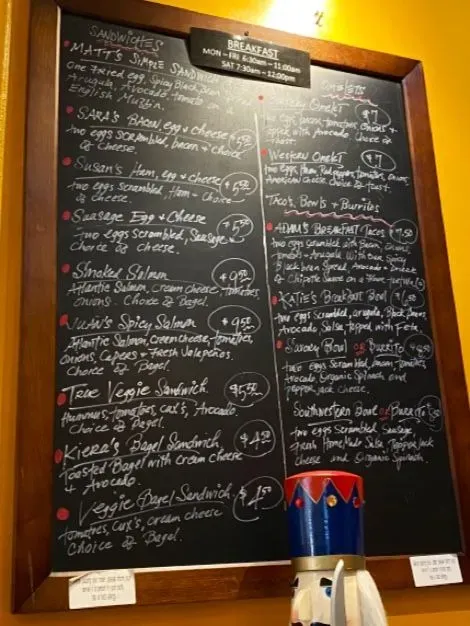 BREAKFAST
MON – FRI 6:30am – 11:00am
SAT 7:30am – 12:00pm
SANDWICHES
MATT'S SIMPLE SANDWICH
one fried egg, Spicy Black Bean
Arugula, Avocado, tomato on a
English Muffin.
SARA'S BACON, egg + cheese $5.50
two eggs scrambled, bacon + choice
of Cheese.
Susan's Ham, egg + cheese $5.50
two eggs scrambled, Ham + Choice
of Cheese.
Sausage Egg + Cheese $5.50
Two eggs scrambled, Sausage
Choice of cheese.
Smoked Salmon $9.50
Atlantic Salmon, cream cheese, tomatoes,
onions. Choice of Bagel.
Juan's Spicy Salmon $9.50
Atlantic Salmon, Cream Cheese, tomatoes,
Onions, Capers + Fresh Jalapeños.
Choice of Bagel.
True Veggie Sandwich. $5.50
Hummus, tomatoes, cux's, Avocado.
Choice of Bagel.
KIERA'S Bagel Sandwich $4.50
toasted Bagel with cream cheese
+ Avocado.
Veggie Bagel Sandwich $4.50
tomatoes, cux's, cream cheese
Choice of Bagel.
OMELETS
Omelet $7
two eggs, bacon, tomatoes, onions +
topped with Avocado. Choice of
toast.
Western Omelet $7
two eggs, Ham, Red peppers, tomatoes, onions,
American cheese, choice of toast.
Taco's, Bowls + Burritos
ADAM'S BREAKFAST Tacos $7.50
two eggs scrambled with Bacon, onions,
tomatoes + Arugula with our spicy
Black bean Spread, Avocado + Drizzle
of Chipotle Sauce on a Flour tortilla (2)
KATIE'S Breakfast Bowl
two eggs scrambled, arugula, Black Beans,
Avocado, Salsa, topped with Feta.
Savory Bowl OR Burrito
two eggs Scrambled, bacon, tomatoes,
Avocado, Organic Spinach and
pepper jack cheese.
Southwestern Bowl OR Burrito
two eggs Scrambled Sausage
Fresh Home Made Salsa, Pepper Jack
cheese and Organic Spinach.